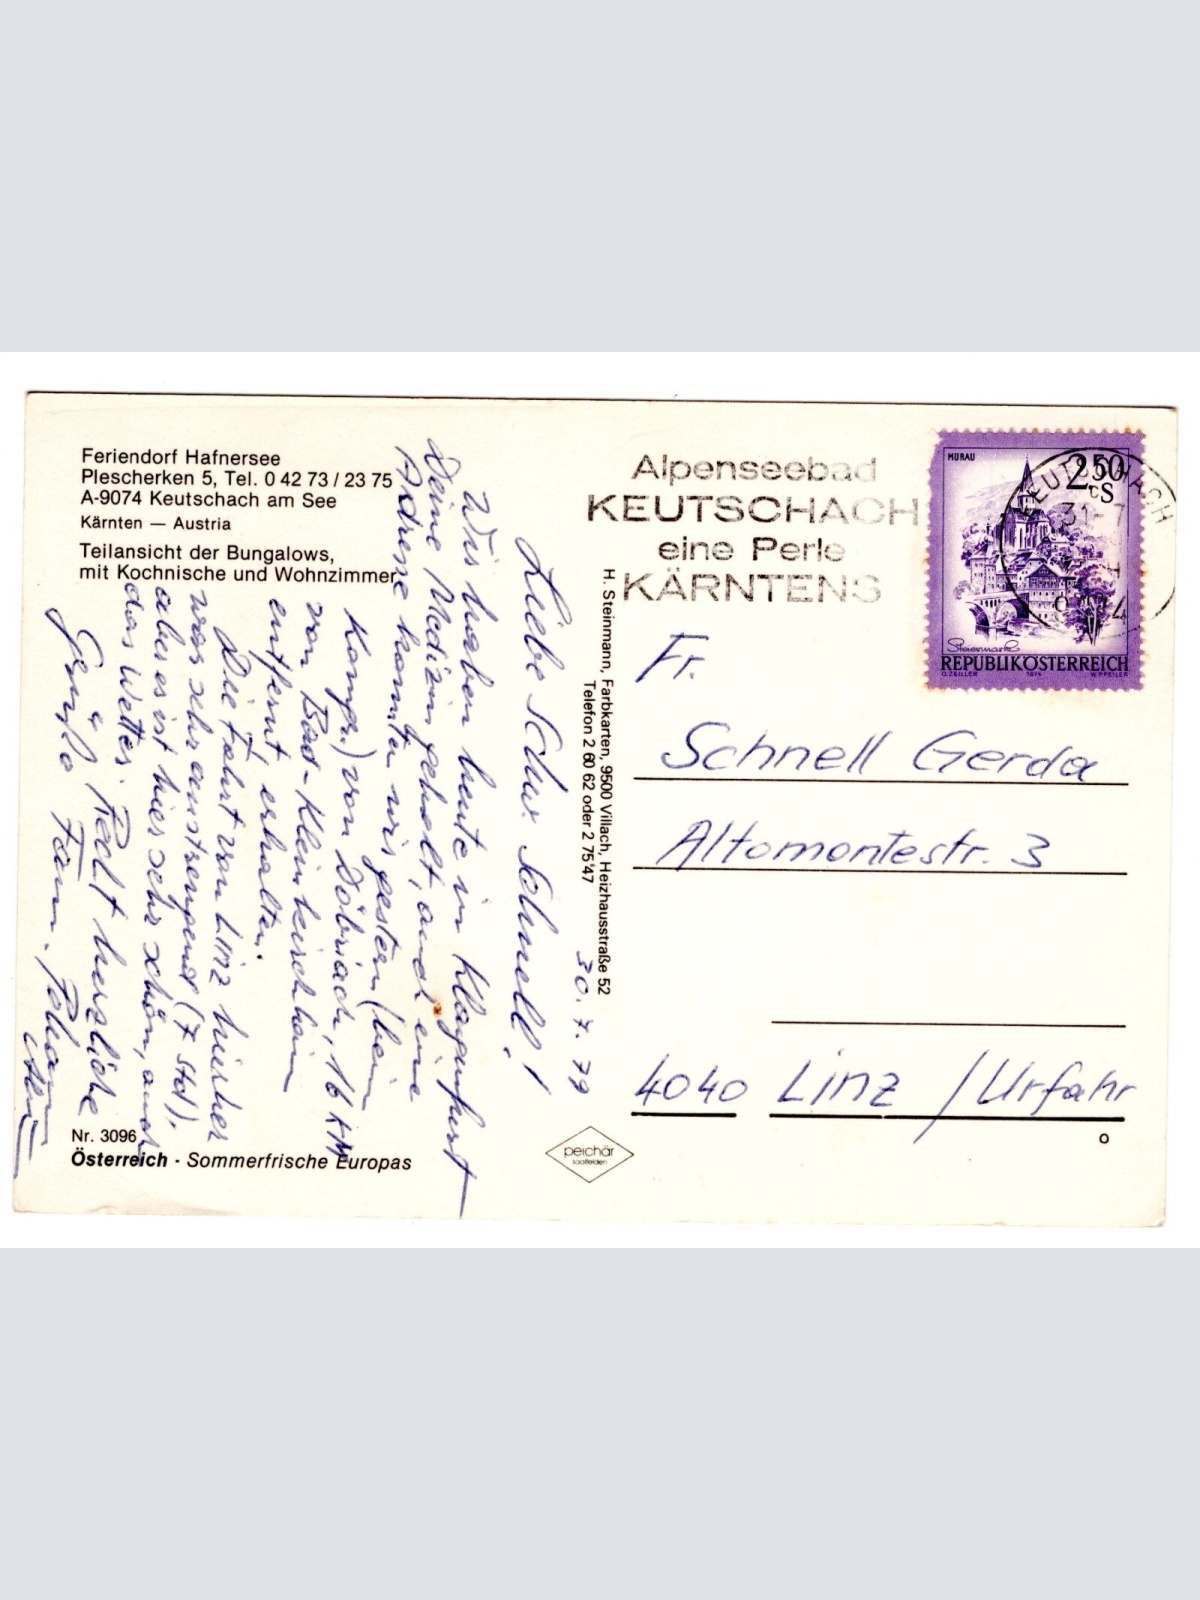 Feriendorf Hafnersee
Plescherken 5, Tel. 0 42 73 / 23 75
A-9074 Keutschach am See
Kärnten — Austria
Teilansicht der Bungalows,
mit Kochnische und Wohnzimmer
30. 7. 79
Liebe Schw. Schnell!
Wir haben heute in Klagenfurt
Deine Medizin geholt, und eine
Adresse konnten wir gestern (beim
Kongr.) von Döbriach, 16 KM
von Bad-Kleinkirchheim
entfernt, erhalten.
Die Fahrt von Linz hierher
war sehr anstrengend (7 Std),
aber es ist hier sehr schön, auch
das Wetter. Recht herzliche
Grüße Fam.
Nr. 3096
Österreich · Sommerfrische Europas
H. Steinmann, Farbkarten, 9500 Villach, Heizhausstraße 52
Telefon 2 60 62 oder 2 75 47
peichär
saalfelden
Alpenseebad
KEUTSCHACH
eine Perle
KÄRNTENS
MURAU
2.50
S
KEUTSCHACH
31-7
Steiermark
REPUBLIK ÖSTERREICH
O. ZEILLER 1974 W. PFEILER
Fr.
Schnell Gerda
Altomontestr. 3
4040 Linz / Urfahr